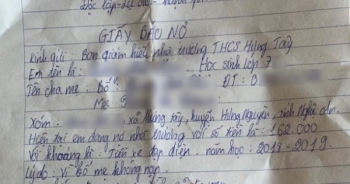 độc lập - tự do - hạnh
GIẤY BÁO NỢ
Kính gửi : Ban giám hiệu nhà trường THCS Hưng Tây
Em tên là : Học sinh lớp 7
Tên cha mẹ : Bố : ĐT : 0
Mẹ
Xóm xã Hưng tây, huyện Hưng Nguyên, tỉnh Nghệ An.
Hiện tại em đang nợ nhà trường với số tiền là : 162.000
Với khoảng là : Tiền xe đạp điện . năm học : 2018 - 2019.
Lý do : Vì bố mẹ không nộp.